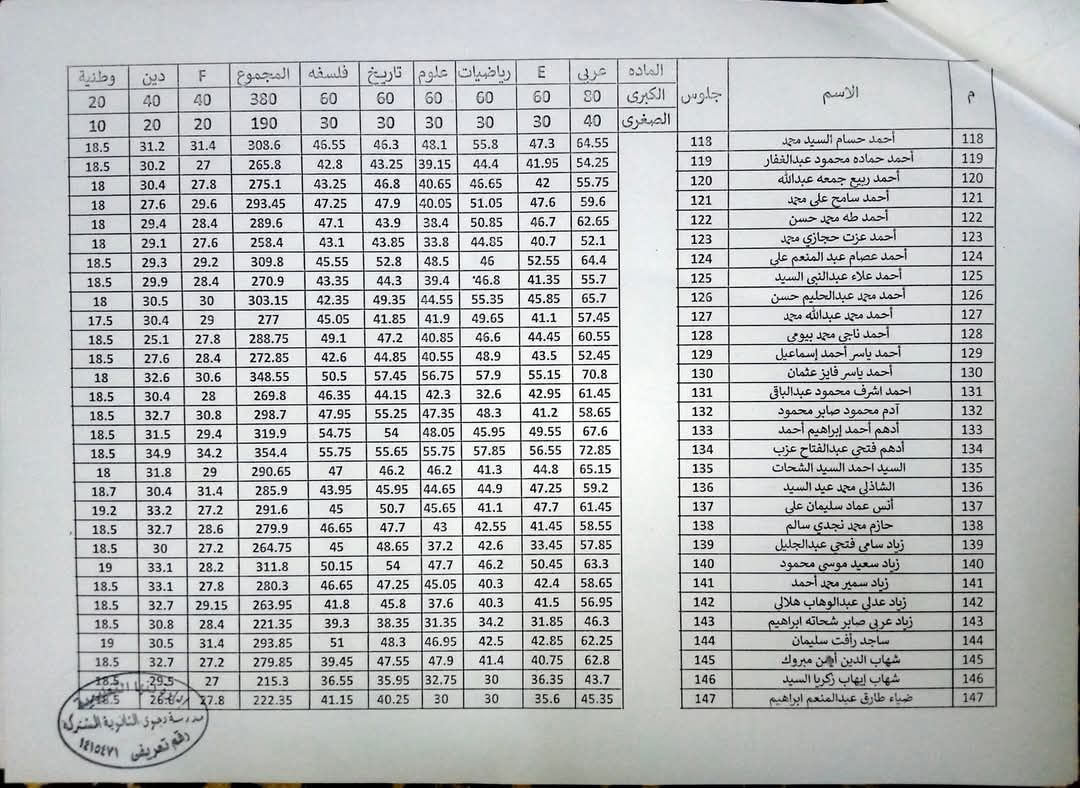 م الاسم جلوس الماده عربي E رياضيات علوم تاريخ فلسفه المجموع F دين وطنية
الكبرى 80 60 60 60 60 60 380 40 40 20
الصغرى 40 30 30 30 30 30 190 20 20 10
118 أحمد حسام السيد محمد 118 64.55 47.3 55.8 48.1 46.3 46.55 308.6 31.4 31.2 18.5
119 أحمد حماده محمود عبدالغفار 119 54.25 41.95 44.4 39.15 43.25 42.8 265.8 27 30.2 18.5
120 أحمد ربيع جمعه عبدالله 120 55.75 42 46.65 40.65 46.8 43.25 275.1 27.8 30.4 18
121 أحمد سامح على محمد 121 59.6 47.6 51.05 40.05 47.9 47.25 293.45 29.6 27.6 18
122 أحمد طه محمد حسن 122 62.65 46.7 50.85 38.4 43.9 47.1 289.6 28.4 29.4 18
123 أحمد عزت حجازي محمد 123 52.1 40.7 44.85 33.8 43.85 43.1 258.4 27.6 29.1 18
124 أحمد عصام عبد المنعم على 124 64.4 52.55 46 48.5 52.8 45.55 309.8 29.2 29.3 18.5
125 أحمد علاء عبدالنبى السيد 125 55.7 41.35 46.8 39.4 44.3 43.35 270.9 28.4 29.9 18.5
126 أحمد محمد عبدالحليم حسن 126 65.7 45.85 55.35 44.55 49.35 42.35 303.15 30 30.5 18
127 أحمد محمد عبدالله محمد 127 57.45 41.1 49.65 41.9 41.85 45.05 277 29 30.4 17.5
128 أحمد ناجى محمد بيومى 128 60.55 44.45 46.6 40.85 47.2 49.1 288.75 27.8 25.1 18.5
129 أحمد ياسر أحمد إسماعيل 129 52.45 43.5 48.9 40.55 44.85 42.6 272.85 28.4 27.6 18.5
130 أحمد ياسر فايز عثمان 130 70.8 55.15 57.9 56.75 57.45 50.5 348.55 30.6 32.6 18
131 احمد اشرف محمود عبدالباقى 131 61.45 42.95 32.6 42.3 44.15 46.35 269.8 28 30.4 18.5
132 آدم محمود صابر محمود 132 58.65 41.2 48.3 47.35 55.25 47.95 298.7 30.8 32.7 18.5
133 أدهم أحمد إبراهيم أحمد 133 67.6 49.55 45.95 48.05 54 54.75 319.9 29.4 31.5 18.5
134 أدهم فتحى عبدالفتاح عزب 134 72.85 56.55 57.85 55.75 55.65 55.75 354.4 34.2 34.9 18.5
135 السيد احمد السيد الشحات 135 65.15 44.8 41.3 46.2 46.2 47 290.65 29 31.8 18
136 الشاذلى محمد عيد السيد 136 59.2 47.25 44.9 44.65 45.95 43.95 285.9 31.4 30.4 18.7
137 أنس عماد سليمان على 137 61.45 47.7 41.1 45.65 50.7 45 291.6 27.2 33.2 19.2
138 حازم محمد نجدي سالم 138 58.55 41.45 42.55 43 47.7 46.65 279.9 28.6 32.7 18.5
139 زياد سامى فتحى عبدالجليل 139 57.85 33.45 42.6 37.2 48.65 45 264.75 27.2 30 18.5
140 زياد سعيد موسى محمود 140 63.3 50.45 46.2 47.7 54 50.15 311.8 28.2 33.1 19
141 زياد سمير محمد أحمد 141 58.65 42.4 40.3 45.05 47.25 46.65 280.3 27.8 33.1 18.5
142 زياد عدلي عبدالوهاب هلالى 142 56.95 41.5 40.3 37.6 45.8 41.8 263.95 29.15 32.7 18.5
143 زياد عربى صابر شحاته ابراهيم 143 46.3 31.85 34.2 31.35 38.35 39.3 221.35 28.4 30.8 18.5
144 ساجد رأفت سليمان 144 62.25 42.85 42.5 46.95 48.3 51 293.85 31.4 30.5 19
145 شهاب الدين أيمن مبروك 145 62.8 40.75 41.4 47.9 47.55 39.45 279.85 27.2 32.7 18.5
146 شهاب إيهاب زكريا السيد 146 43.7 36.35 30 32.75 35.95 36.55 215.3 27 29.5 18.5
147 ضياء طارق عبدالمنعم ابراهيم 147 45.35 35.6 30 30 40.25 41.15 222.35 27.8
مدرسة دجوى الثانوية المشتركة
رقم تعريفى
١٤١٥٤٧١